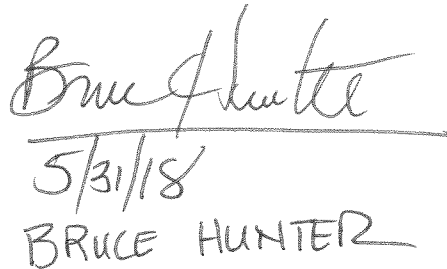 Bruce Hunter
5/31/18
BRUCE HUNTER